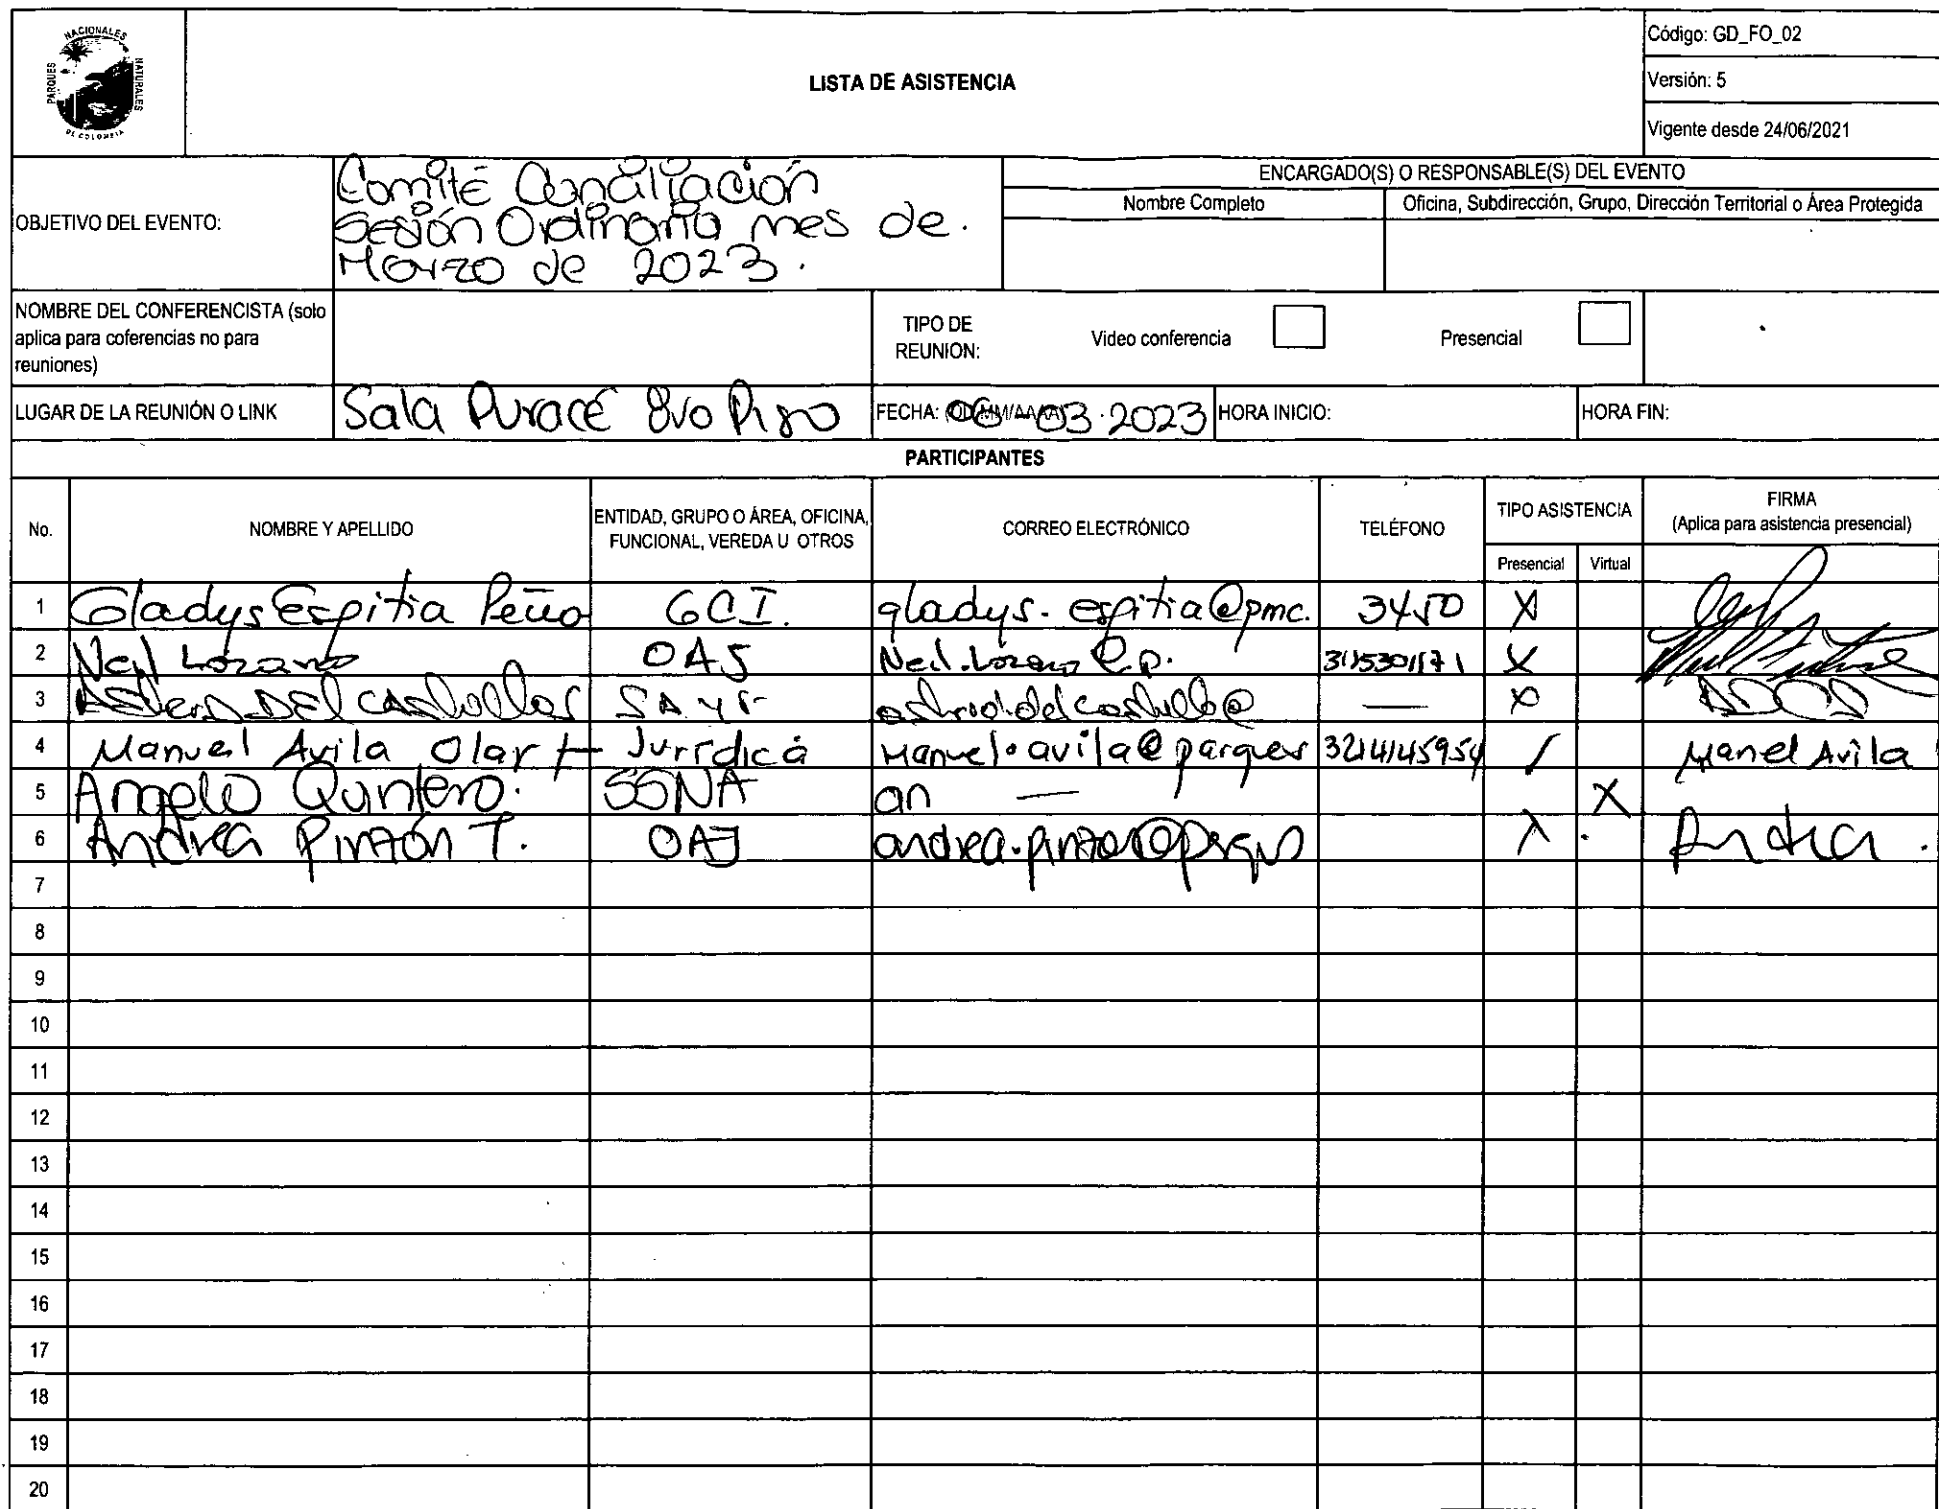 PARQUES NACIONALES NATURALES DE COLOMBIA
LISTA DE ASISTENCIA
Código: GD_FO_02
Versión: 5
Vigente desde 24/06/2021
OBJETIVO DEL EVENTO:
Comité Conciliación
Sesión Ordinaria mes de.
Marzo de 2023.
ENCARGADO(S) O RESPONSABLE(S) DEL EVENTO
Nombre Completo
Oficina, Subdirección, Grupo, Dirección Territorial o Área Protegida
NOMBRE DEL CONFERENCISTA (solo
aplica para coferencias no para
reuniones)
TIPO DE
REUNION:
Video conferencia
Presencial
LUGAR DE LA REUNIÓN O LINK
Sala Puracé 8vo Piso
FECHA: (DD/MM/AAAA) 06-03-2023
HORA INICIO:
HORA FIN:
PARTICIPANTES
No.
NOMBRE Y APELLIDO
ENTIDAD, GRUPO O ÁREA, OFICINA,
FUNCIONAL, VEREDA U OTROS
CORREO ELECTRÓNICO
TELÉFONO
TIPO ASISTENCIA
Presencial Virtual
FIRMA
(Aplica para asistencia presencial)
1 Gladys Espitia Peña GCI. gladys.espitia@pmc. 3450 X
2 Neil Lozano OAJ Neil.Lozano @.p. X
3 DEl Castillo astrid.delcastillo@ — X
4 Manuel Avila Olarte Jurídica Manuel.avila@parques 3214145954 / Manel Avila
5 Angelo Quintero. SSNA an — X
6 Andrea Pinzón T. OAJ andrea.pinzon@parques X Andrea.
7
8
9
10
11
12
13
14
15
16
17
18
19
20